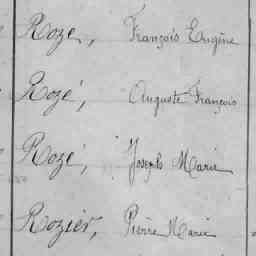 Roze, François Eugène
Rozé, Auguste François
Rozé, Joseph Marie
Rozier, Pierre Marie